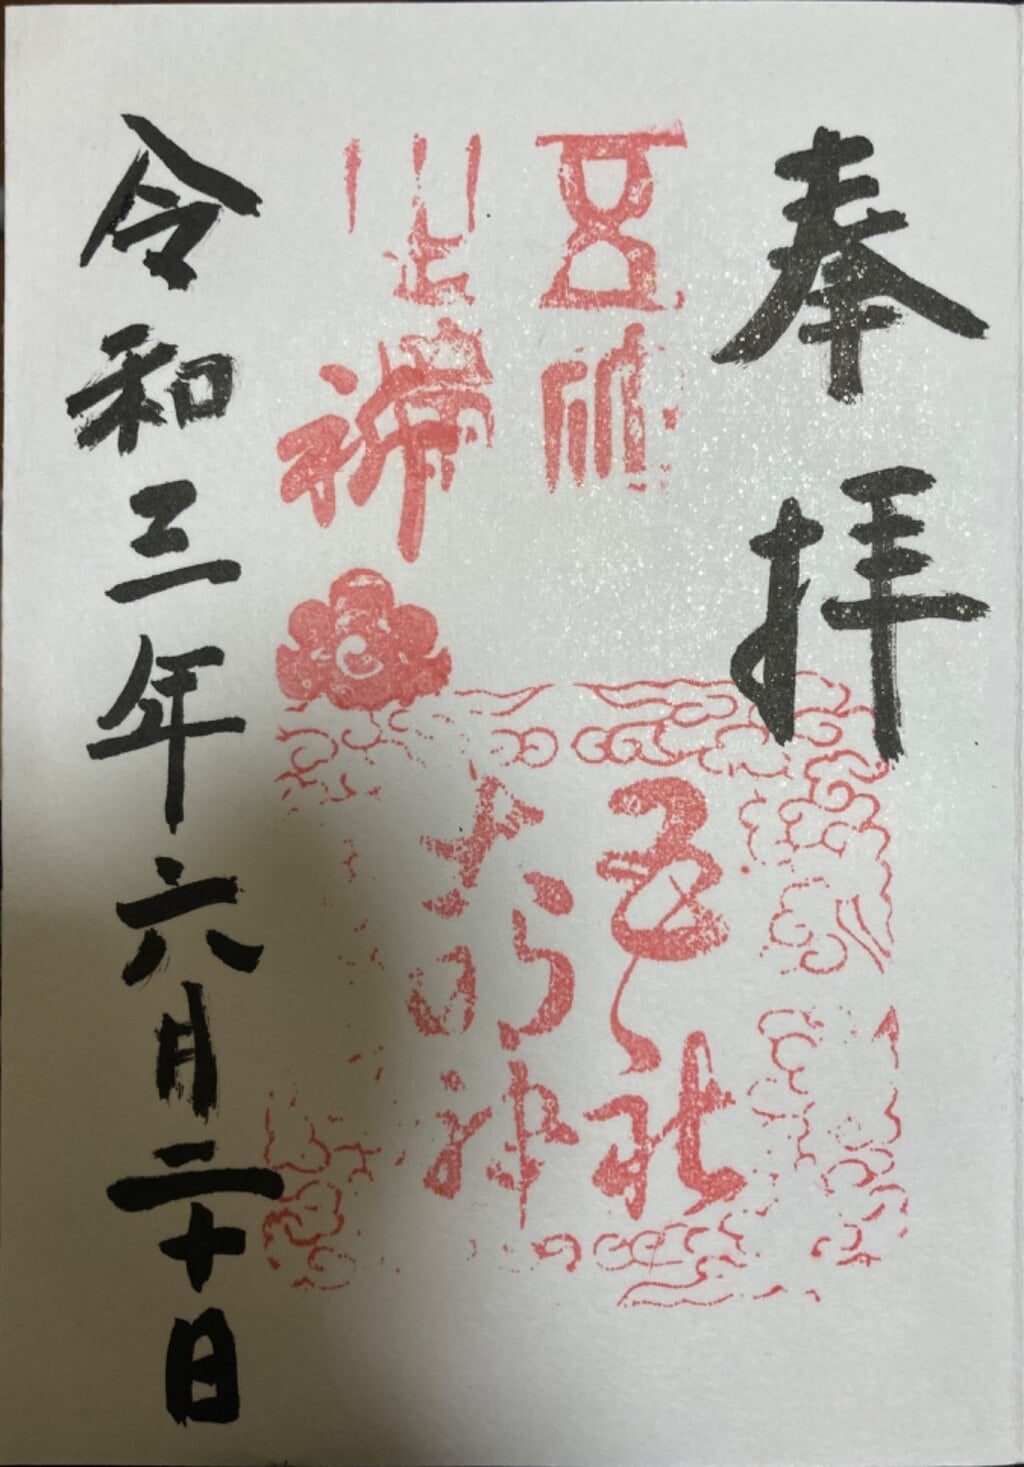 奉拝
五社
大明神
令和三年六月二十日